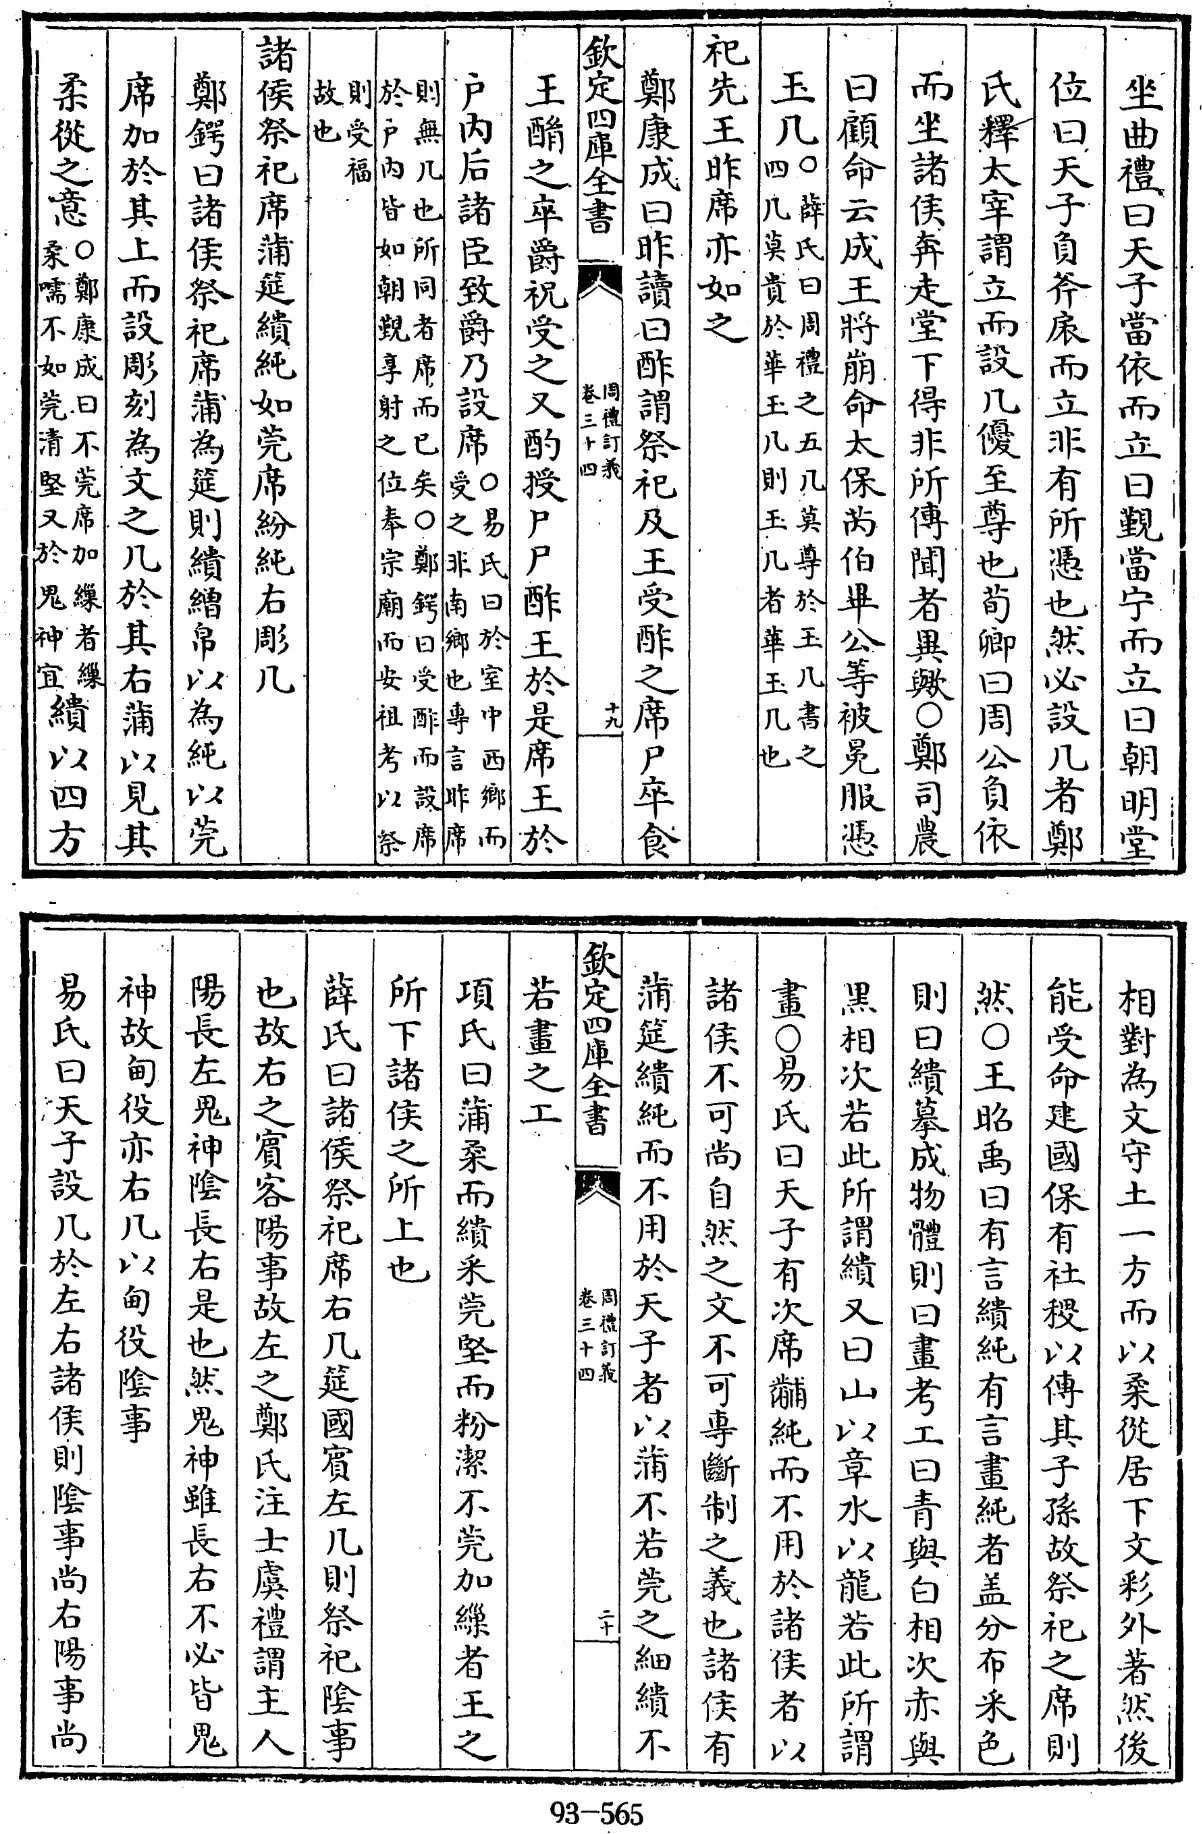 坐曲禮曰天子當依而立曰覲當宁而立曰朝明堂
位曰天子負斧扆而立非有所憑也然必設几者鄭
氏釋太宰謂立而設几優至尊也荀卿曰周公負依
而坐諸侯奔走堂下得非所傳聞者異歟○鄭司農
曰顧命云成王將崩命太保芮伯畢公等被冕服憑
玉几○薛氏曰周禮之五几莫尊於玉几書之
四几莫貴於華玉几則玉几者華玉几也
祀先王昨席亦如之
鄭康成曰昨讀曰酢謂祭祀及王受酢之席尸卒食
欽定四庫全書
周禮訂義
卷三十四
十九
王酳之卒爵祝受之又酌授尸尸酢王於是席王於
户内后諸臣致爵乃設席○易氏曰於室中西鄉而
受之非南鄉也專言昨席
則無几也所同者席而已矣○鄭鍔曰受酢而設席
於户内皆如朝覲享射之位奉宗廟而安祖考以祭
則受福
故也
諸侯祭祀席蒲筵繢純如莞席紛純右彫几
鄭鍔曰諸侯祭祀席蒲為筵則繢繒帛以為純以莞
席加於其上而設彫刻為文之几於其右蒲以見其
柔從之意○鄭康成曰不莞席加繅者繅
柔嚅不如莞清堅又於鬼神宜繢以四方
相對為文守土一方而以柔從居下文彩外著然後
能受命建國保有社稷以傳其子孫故祭祀之席則
然○王昭禹曰有言繢純有言畫純者盖分布采色
則曰繢摹成物體則曰畫考工曰青與白相次赤與
黑相次若此所謂繢又曰山以章水以龍若此所謂
畫○易氏曰天子有次席黼純而不用於諸侯者以
諸侯不可尚自然之文不可專斷制之義也諸侯有
蒲筵繢純而不用於天子者以蒲不若莞之細繢不
欽定四庫全書
周禮訂義
卷三十四
二十
若畫之工
項氏曰蒲柔而繢采莞堅而粉潔不莞加繅者王之
所下諸侯之所上也
薛氏曰諸侯祭祀席右几筵國賓左几則祭祀陰事
也故右之賓客陽事故左之鄭氏注士虞禮謂主人
陽長左鬼神陰長右是也然鬼神雖長右不必皆鬼
神故甸役亦右几以甸役陰事
易氏曰天子設几於左右諸侯則陰事尚右陽事尚
93-565